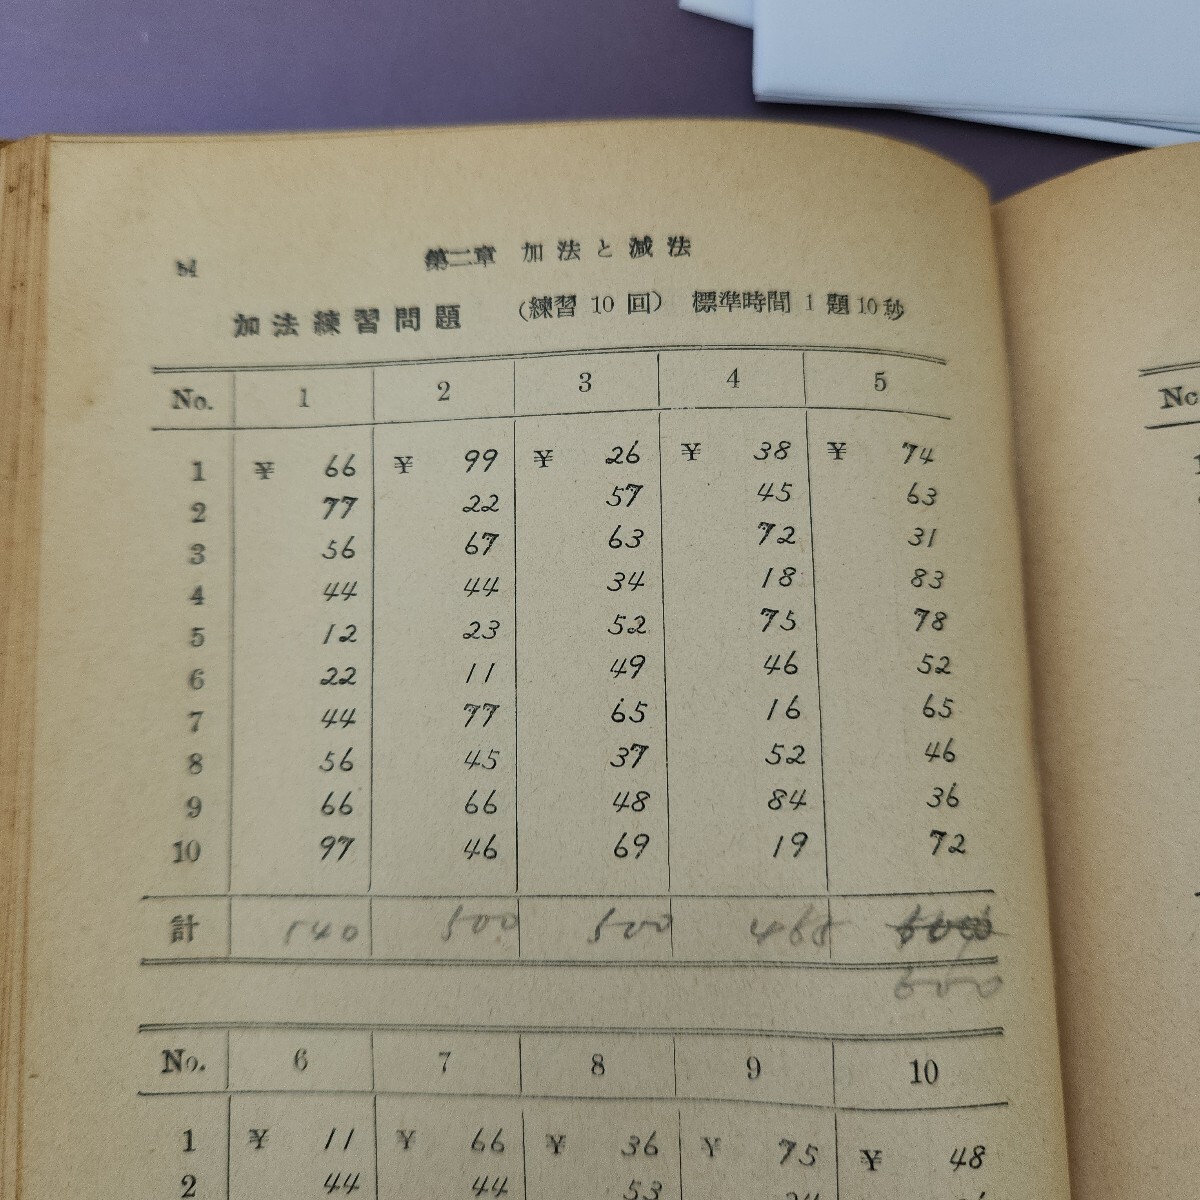 54
第二章 加法と減法
加法練習問題 (練習 10 回) 標準時間 1 題 10 秒
No. 1 2 3 4 5
1 ¥ 66 ¥ 99 ¥ 26 ¥ 38 ¥ 74
2 77 22 57 45 63
3 56 67 63 72 31
4 44 44 34 18 83
5 12 23 52 75 78
6 22 11 49 46 52
7 44 77 65 16 65
8 56 45 37 52 46
9 66 66 48 84 36
10 97 46 69 19 72
計 540 500 500 465
600
No. 6 7 8 9 10
1 ¥ 11 ¥ 66 ¥ 36 ¥ 75 ¥ 48
2 44 44 53